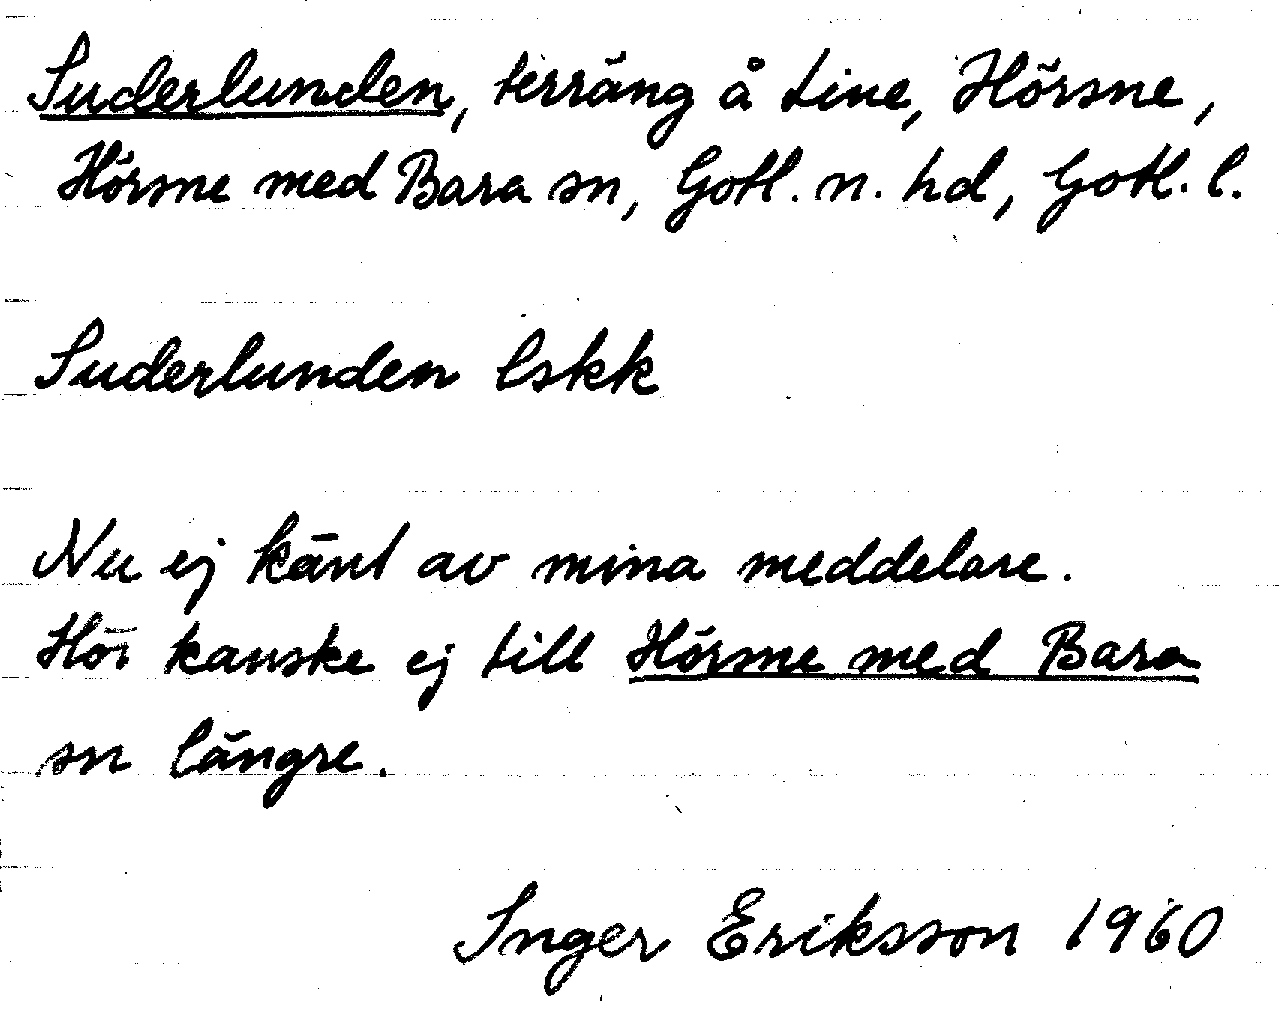 Suderlunden, terräng å Tine, Hörsne,
Hörsne med Bara sn, Gotl. n. hd, Gotl. l.
Suderlunden lskk
Nu ej känt av mina meddelare.
Hör kanske ej till Hörsne med Bara
sn längre.
Inger Eriksson 1960